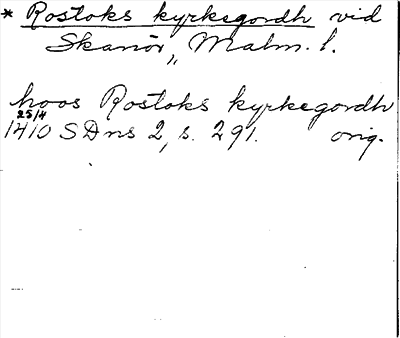 * Rostoks kyrkegordh vid
Skanör, Malm. l.
hoos Rostoks kyrkegordh
25/4
1410 SDns 2, s. 291. orig.